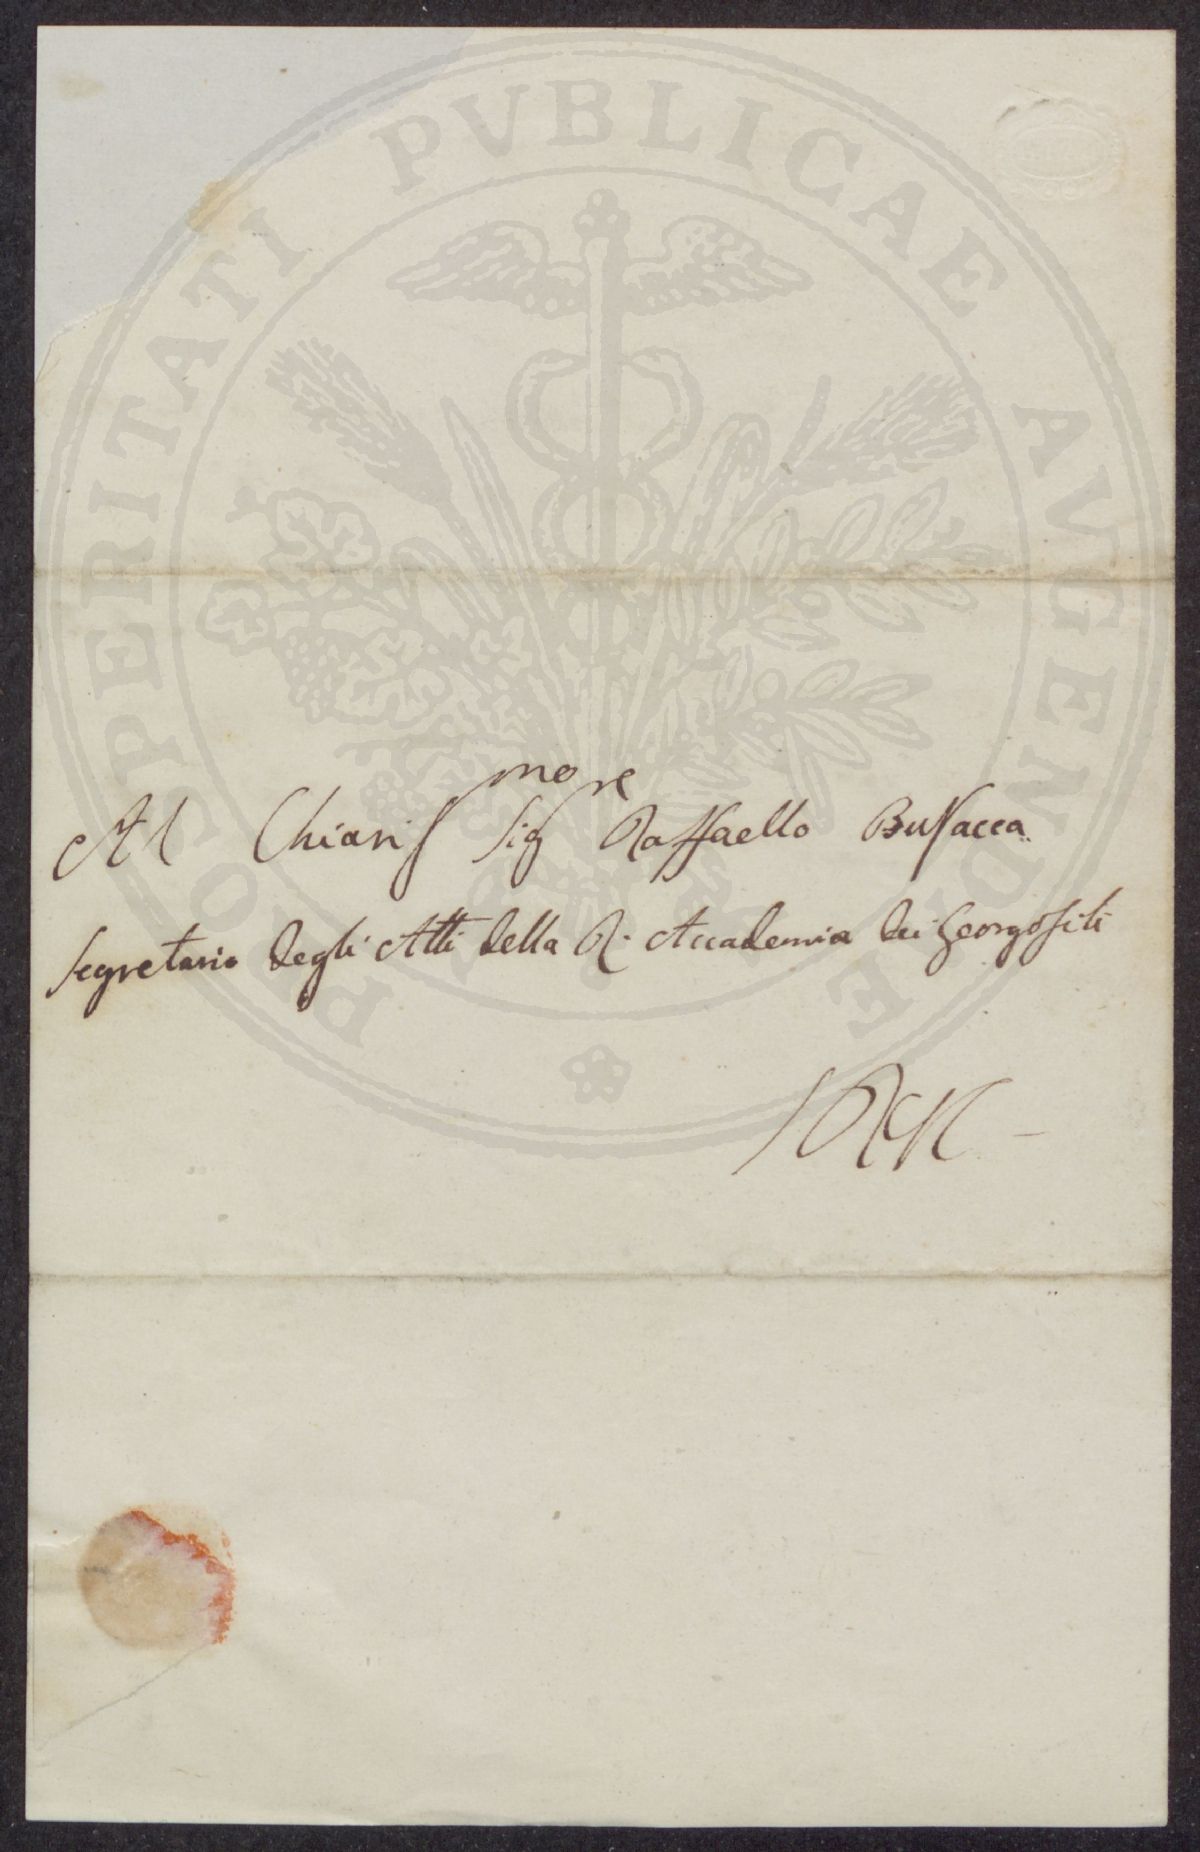 PROSPERITATI PVBLICAE AVGENDAE
Al Chiaris^mo Sig^re Raffaello Busacca
Segretario degli Atti della R. Accademia dei Georgofili